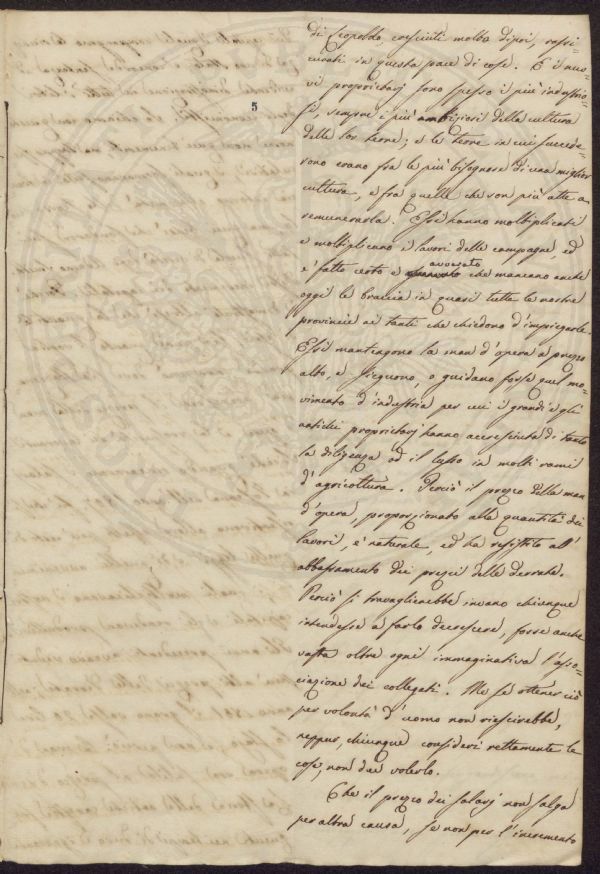 5
di Leopoldo cresciuti molto dipoi, rassi=
curati in questa pace di cose. E i nuo=
vi proprietarj sono spesso i più industrio=
si, sempre i più ambiziosi della cultura
delle lor terre; e le terre in cui succede=
rono erano fra le più bisognose di una miglior
cultura, e frà quelle che son più atte a
remunerarla. Essi hanno moltiplicati
e moltiplicano i lavori delle campagne, ed
e' fatto certo e avverato che mancano anche
oggi le braccia in quasi tutte le nostre
provincie ai tanti che chiedono d'impiegarle.
Essi mantengono la man d'opera a prezzo
alto, e sieguono, o guidano forse quel mo=
vimento d'industria per cui i grandi e gli
antichi proprietarj hanno accresciuta di tanto
la diligenza ed il lusso in molti rami
d'agricoltura. Perciò il prezzo della man
d'opera, proporzionato alla quantità dei
lavori, e' naturale, ed ha resistito all'
abbassamento dei prezzi delle derrate.
Perciò si travaglierebbe invano chiunque
intendesse a farlo decrescere, fosse anche
vasta oltre ogni immaginativa l'asso=
ciazione dei collegati. Ma se ottener ciò
per volontà d'uomo non riescirebbe,
neppur, chiunque consideri rettamente le
cose, non dee volerlo.
Che il prezzo dei salarj non salga
per altra causa, se non per l'incremento